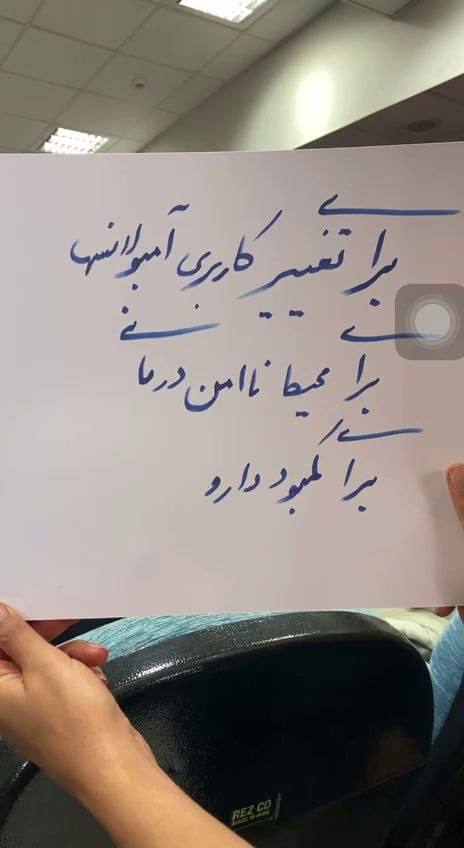 برای تغییر کاربری آمبولانسها
برای محیط ناامن درمانی
برای کمبود دارو
REZ CO
MADE IN IRAN